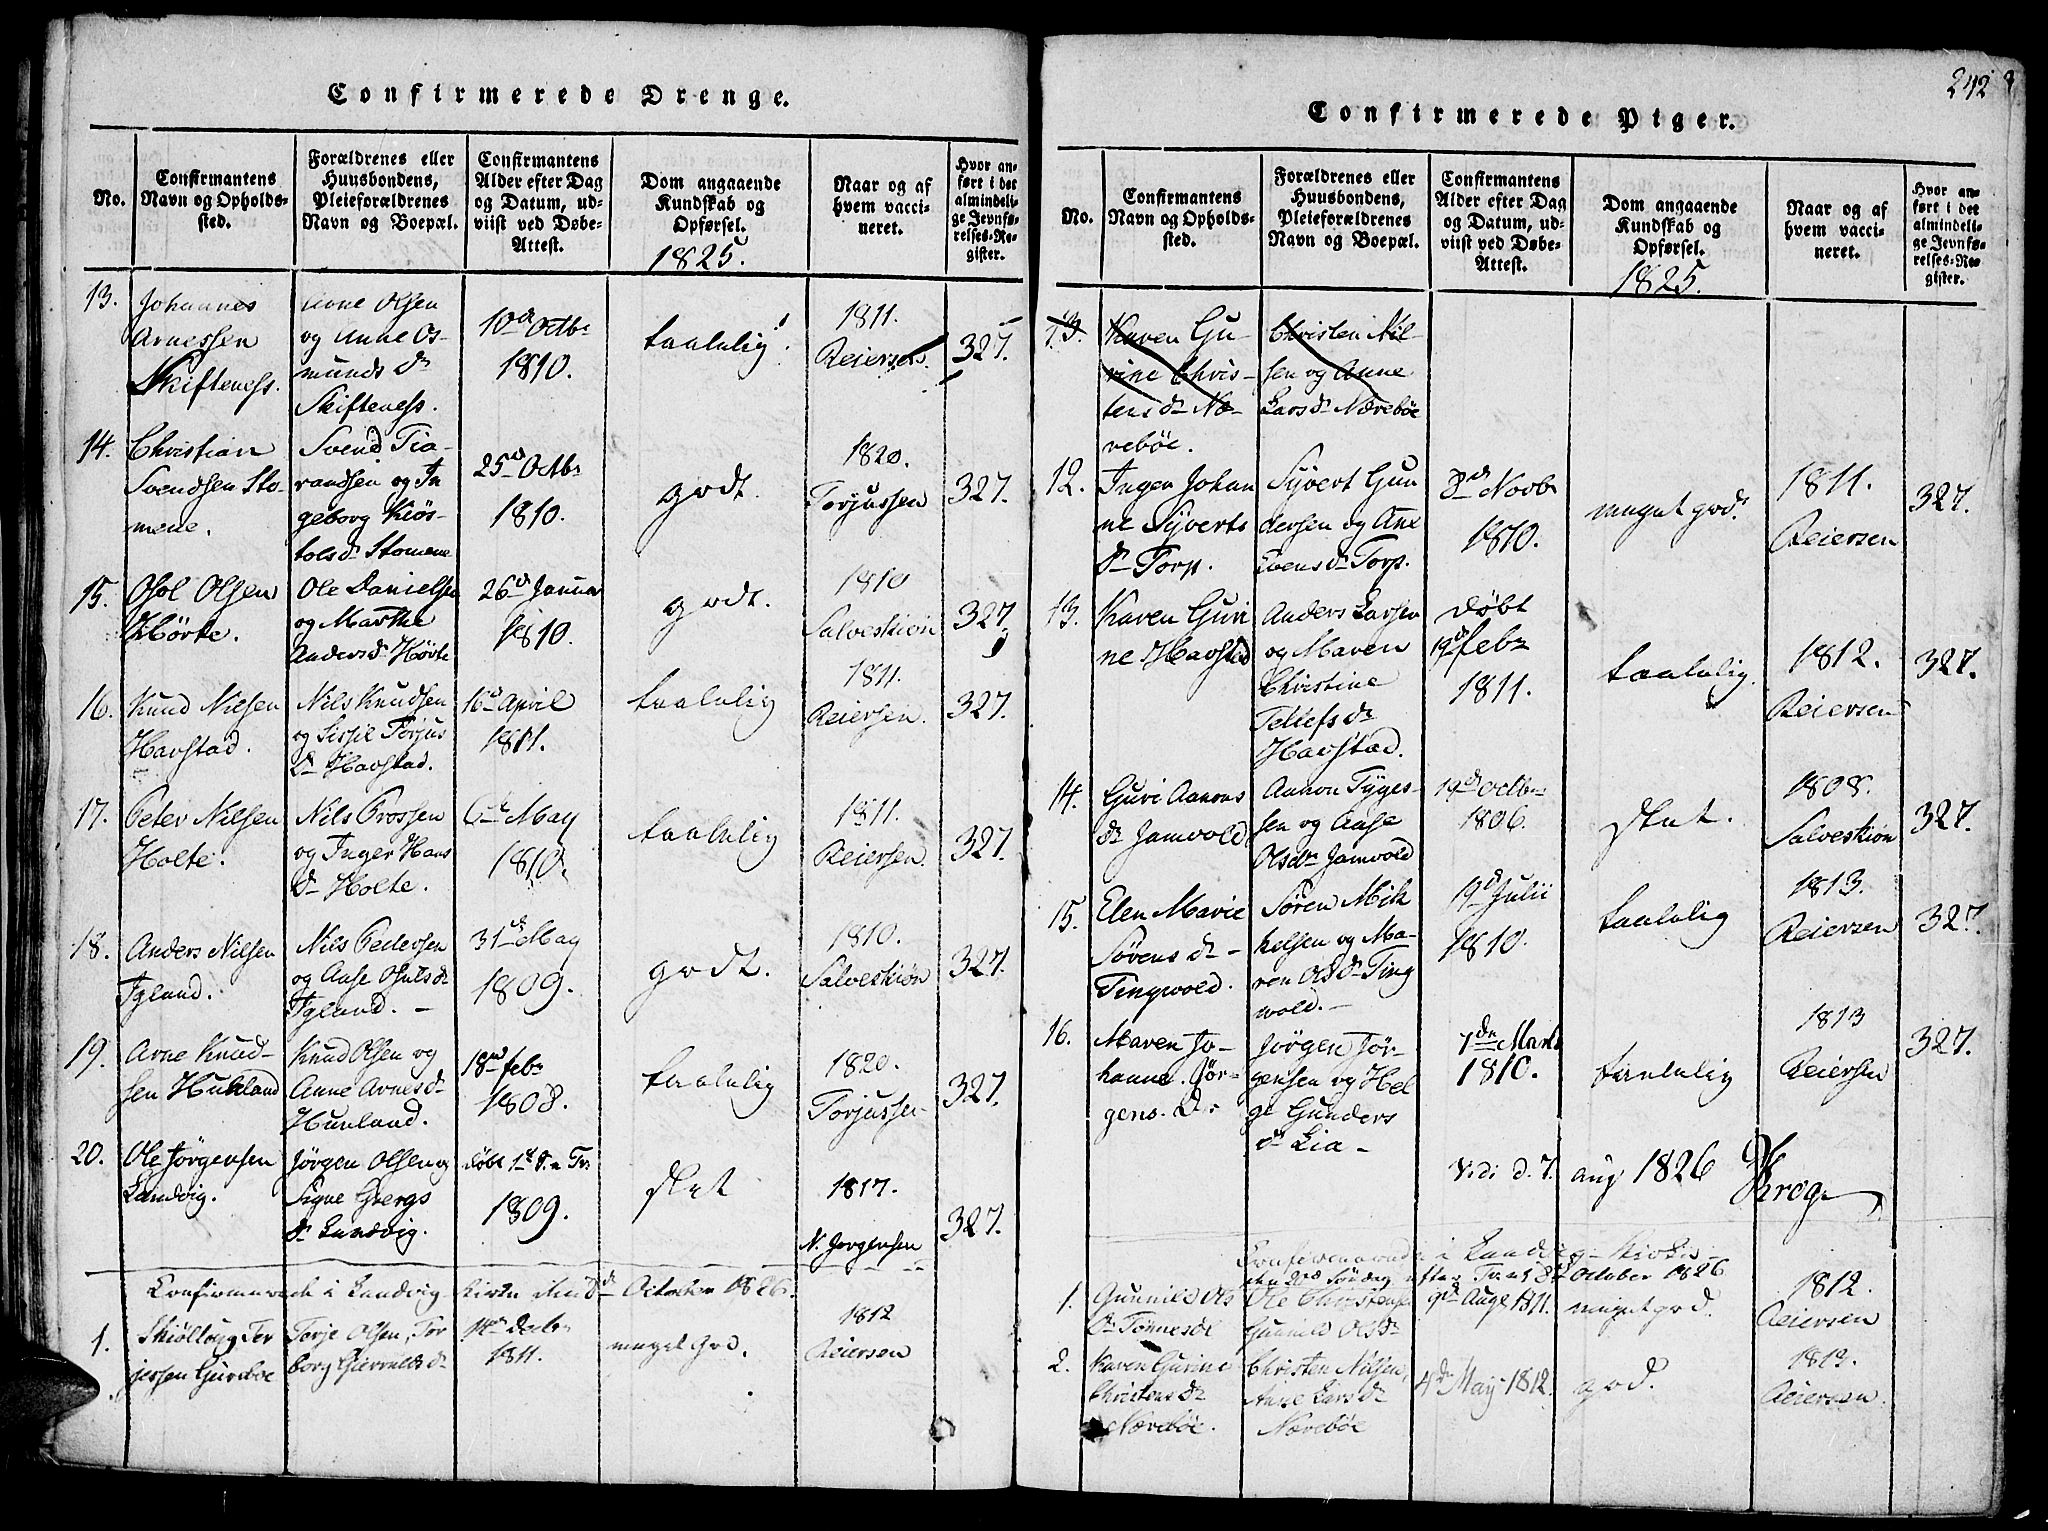 242
Confirmerede Drenge.
No.
Confirmantens
Navn og Opholds-
sted.
Forældrenes eller
Huusbondens,
Pleieforældrenes
Navn og Boepæl.
Confirmantens
Alder efter Dag
og Datum, ud-
viist ved Døbe-
Attest.
Dom angaaende
Kundskab og
Opførsel.
1825.
Naar og af
hvem vacci-
neret.
Hvor an-
ført i det
almindeli-
ge Jevnfø-
relses-Re-
gister.
13.
Johannes
Arnessen
Skifteness.
Arne Olsen
og Anne Os-
munds Dr
Skifteness.
10d Octbr
1810.
taalelig.
1811.
Reiersen.
327.
14.
Christian
Svendsen Sto-
mene.
Svend Tia-
randsen og In
geborg Kiös-
tolsdr Stomene
25d Octbr
1810.
godt.
1820.
Torjussen
327.
15.
Osol Olsen
Hörte.
Ole Danielsen
og Marthe
Anders dr Hörte
26d Januar
1810.
godt.
1810
Salveskiön
327.
16.
Knud Nielsen
Havstad.
Nils Knudsen
og Sissie Torjus
Dr Havstad.
16d April
1811.
taalelig
1811.
Reiersen.
327.
17.
Peter Nilsen
Holte.
Nils Prossen
og Inger Hans
Dr Holte.
6te May
1810.
taalelig
1811.
Reiersen.
327.
18.
Anders Nilsen
Igland.
Nils Pedersen
og Aase Osulsdr
Igland.
31d May
1809.
godt.
1810.
Salveskiön
327.
19.
Arne Knud-
sen Hukland
Knud Olsen og
Anne Arnesdr
Huuland.
18d febr
1808.
taalelig
1820.
Torjussen
327.
20.
Ole Jörgensen
Landvig.
Jörgen Olsen og
Signe Gregs
Dr Landvig.
döbt 1st S. e Tr:
1809.
slet
1817.
N. Jørgensen
327.
Confirmerede i Landvig Kirke den 8d October 1826.
1.
Skiölloug Ter
jessen Gureböe
Torje Olsen, Tor
borg Giervulds dr
14d Decbr
1811.
meget god.
1812
Reiersen
Confirmerede Piger.
No.
Confirmantens
Navn og Opholds-
sted.
Forældrenes eller
Huusbondens,
Pleieforældrenes
Navn og Boepæl.
Confirmantens
Alder efter Dag
og Datum, ud-
viist ved Døbe-
Attest.
Dom angaaende
Kundskab og
Opførsel.
1825.
Naar og af
hvem vacci-
neret.
Hvor an-
ført i det
almindeli-
ge Jevnfø-
relses-Re-
gister.
13.
Karen Gu-
rine Chris-
tens dr Næ-
reböe.
Christen Nil-
sen og Anne
Lars dr Næreböe
12.
Ingen Johan
ne Syverts
Dr Torp.
Syvert Gun
dersen og Ane
Evens dr Torp.
8d Novbr
1810.
meget god.
1811.
Reiersen
327.
13.
Karen Guri
ne Havsted
Anders Larsen
og Maren
Christine
Teliefs dr
Havstad.
döbt
19d febr
1811.
taalelig.
1812.
Reiersen
327.
14.
Guri Aanons
dr Jamvold
Aanon Tyges-
sen og Aase
Olsdr Jamvold
19d Octbr
1806.
slet.
1808.
Salveskiön
327.
15.
Elen Marie
Sörens dr
Tingvold.
Sören Mik
kelsen og Ma-
ren Ols dr Ting
vold.
19d Julii
1810.
taalelig
1813.
Reiersen
327.
16.
Maren Jo-
hanne Jör-
gens. Dr
Jörgen Jör-
gensen og Hel
ge Gunders
dr Lia
7de Marts
1810.
taalelig
1813
Reiersen
327.
Vidi d. 7. aug 1826 Krog
Confirmerede i Landvig Kirke
den 20d Söndag efter Trin: 8d October 1826
1.
Gunnild Ols
Dr Tönnesöl
Ole Christensen
Gunnild Olsdr
9d Aug 1811.
meget god.
1812.
Reiersen
2.
Karen Gurine
Christens dr
Næreböe.
Christen Nilsen,
Anne Lars dr
Næreböe
4d May 1812.
god.
1812.
Reiersen.